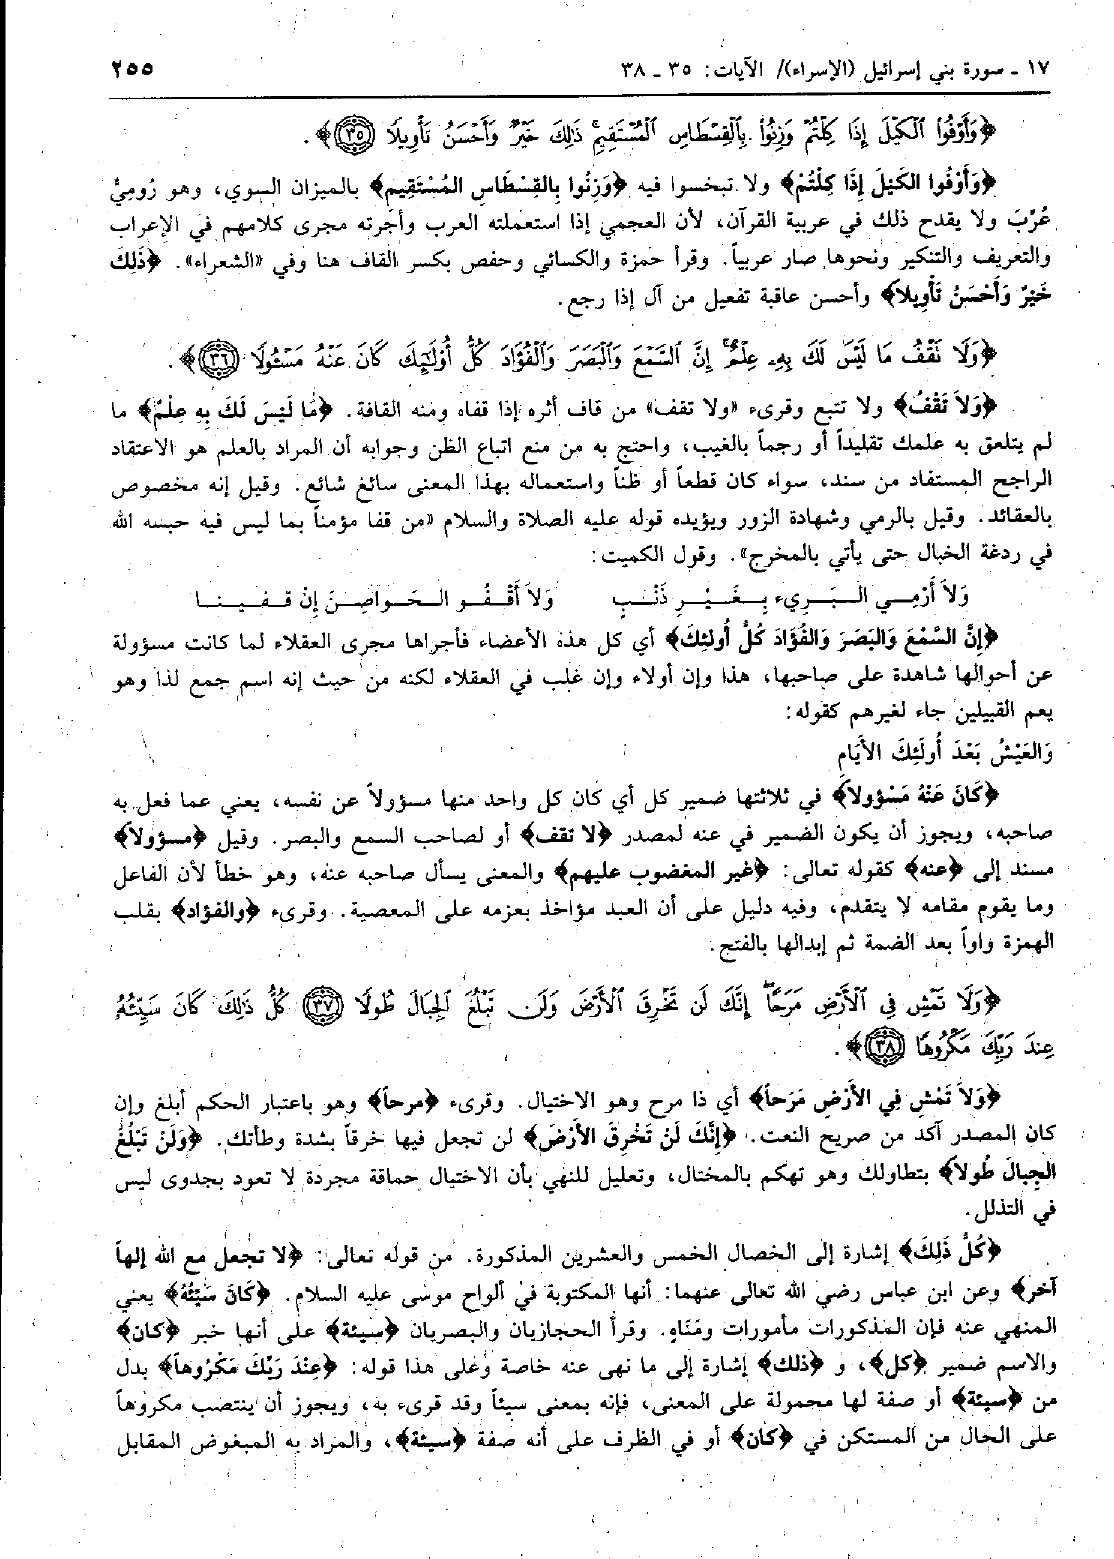 ١٧ ـ سورة بني إسرائيل (الإسراء)/ الآيات: ٣٥ ـ ٣٨ ٢٥٥
﴿وَأَوْفُوا الْكَيْلَ إِذَا كِلْتُمْ وَزِنُوا بِالْقِسْطَاسِ الْمُسْتَقِيمِ ذَلِكَ خَيْرٌ وَأَحْسَنُ تَأْوِيلًا ﴿٣٥﴾﴾.
﴿وَأَوْفُوا الكَيْلَ إِذَا كِلْتُمْ﴾ ولا تبخسوا فيه ﴿وَزِنُوا بِالقِسْطَاسِ المُسْتَقِيمِ﴾ بالميزان السوي، وهو رُومِيٌّ
عُرِّبَ ولا يقدح ذلك في عربية القرآن، لأن العجمي إذا استعملته العرب وأجرته مجرى كلامهم في الإعراب
والتعريف والتنكير ونحوها صار عربياً. وقرأ حمزة والكسائي وحفص بكسر القاف هنا وفي «الشعراء». ﴿ذَلِكَ
خَيْرٌ وَأَحْسَنُ تَأْوِيلاً﴾ وأحسن عاقبة تفعيل من آل إذا رجع.
﴿وَلَا تَقْفُ مَا لَيْسَ لَكَ بِهِ عِلْمٌ إِنَّ السَّمْعَ وَالْبَصَرَ وَالْفُؤَادَ كُلُّ أُولَئِكَ كَانَ عَنْهُ مَسْئُولًا ﴿٣٦﴾﴾.
﴿وَلاَ تَقْفُ﴾ ولا تتبع وقرىء «ولا تقف» من قاف أثره إذا قفاه ومنه القافة. ﴿مَا لَيْسَ لَكَ بِهِ عِلْمٌ﴾ ما
لم يتلعق به علمك تقليداً أو رجماً بالغيب، واحتج به من منع اتباع الظن وجوابه أن المراد بالعلم هو الاعتقاد
الراجح المستفاد من سند، سواء كان قطعاً أو ظناً واستعماله بهذا المعنى سائغ شائع. وقيل إنه مخصوص
بالعقائد. وقيل بالرمي وشهادة الزور ويؤيده قوله عليه الصلاة والسلام «من قفا مؤمناً بما ليس فيه حبسه الله
في ردغة الخبال حتى يأتي بالمخرج». وقول الكميت:
وَلاَ أَرْمِي البَرِيء بِغَيْرِ ذَنْبٍ وَلاَ أَقْفُو الحَواصِنَ إِنْ قفينا
﴿إِنَّ السَّمْعَ وَالبَصَرَ وَالفُؤَادَ كُلُّ أُولئِكَ﴾ أي كل هذه الأعضاء فأجراها مجرى العقلاء لما كانت مسؤولة
عن أحوالها شاهدة على صاحبها، هذا وإن أولاء وإن غلب في العقلاء لكنه من حيث إنه اسم جمع لذا وهو
يعم القبيلين جاء لغيرهم كقوله:
وَالعَيْشُ بَعْدَ أُولَئِكَ الأَيَّامِ
﴿كَانَ عَنْهُ مَسْؤولاً﴾ في ثلاثتها ضمير كل أي كان كل واحد منها مسؤولاً عن نفسه، يعني عما فعل به
صاحبه، ويجوز أن يكون الضمير في عنه لمصدر ﴿لا تقف﴾ أو لصاحب السمع والبصر. وقيل ﴿مسؤولاً﴾
مسند إلى ﴿عنه﴾ كقوله تعالى: ﴿غير المغضوب عليهم﴾ والمعنى يسأل صاحبه عنه، وهو خطأ لأن الفاعل
وما يقوم مقامه لا يتقدم، وفيه دليل على أن العبد مؤاخذ بعزمه على المعصية. وقرىء ﴿والفؤاد﴾ بقلب
الهمزة واواً بعد الضمة ثم إبدالها بالفتح.
﴿وَلَا تَمْشِ فِي الْأَرْضِ مَرَحًا إِنَّكَ لَن تَخْرِقَ الْأَرْضَ وَلَن تَبْلُغَ الْجِبَالَ طُولًا ﴿٣٧﴾ كُلُّ ذَلِكَ كَانَ سَيِّئُهُ
عِندَ رَبِّكَ مَكْرُوهًا ﴿٣٨﴾﴾.
﴿وَلاَ تَمْشِ فِي الأَرْضِ مَرَحاً﴾ أي ذا مرح وهو الاختيال. وقرىء ﴿مرحاً﴾ وهو باعتبار الحكم أبلغ وإن
كان المصدر آكد من صريح النعت. ﴿إِنَّكَ لَنْ تَخْرِقَ الأَرْضَ﴾ لن تجعل فيها خرقاً بشدة وطأتك. ﴿وَلَنْ تَبْلُغَ
الجِبالَ طُولاً﴾ بتطاولك وهو تهكم بالمختال، وتعليل للنهي بأن الاختيال حماقة مجردة لا تعود بجدوى ليس
في التذلل.
﴿كُلُّ ذَلِكَ﴾ إشارة إلى الخصال الخمس والعشرين المذكورة. من قوله تعالى: ﴿لا تجعل مع الله إلهاً
آخر﴾ وعن ابن عباس رضي الله تعالى عنهما: أنها المكتوبة في ألواح موسى عليه السلام. ﴿كَانَ سَيِّئُهُ﴾ يعني
المنهي عنه فإن المذكورات مأمورات ومَنَاهٍ. وقرأ الحجازيان والبصريان ﴿سيئة﴾ على أنها خبر ﴿كان﴾
والاسم ضمير ﴿كل﴾، و ﴿ذلك﴾ إشارة إلى ما نهى عنه خاصة وعلى هذا قوله: ﴿عِنْدَ رَبِّكَ مَكْرُوهاً﴾ بدل
من ﴿سيئة﴾ أو صفة لها محمولة على المعنى، فإنه بمعنى سيئاً وقد قرىء به، ويجوز أن ينتصب مكروهاً
على الحال من المستكن في ﴿كان﴾ أو في الظرف على أنه صفة ﴿سيئة﴾، والمراد به المبغوض المقابل